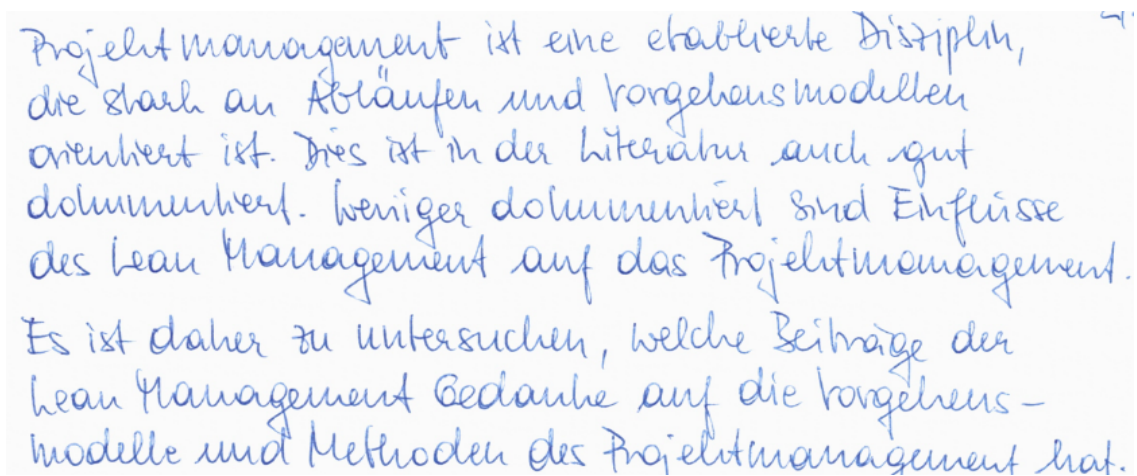 Projektmanagement ist eine etablierte Disziplin,
die stark an Abläufen und Vorgehensmodellen
orientiert ist. Dies ist in der Literatur auch gut
dokumentiert. Weniger dokumentiert sind Einflüsse
des Lean Management auf das Projektmanagement.
Es ist daher zu untersuchen, welche Beiträge der
Lean Management Gedanke auf die Vorgehens-
modelle und Methoden des Projektmanagement hat.